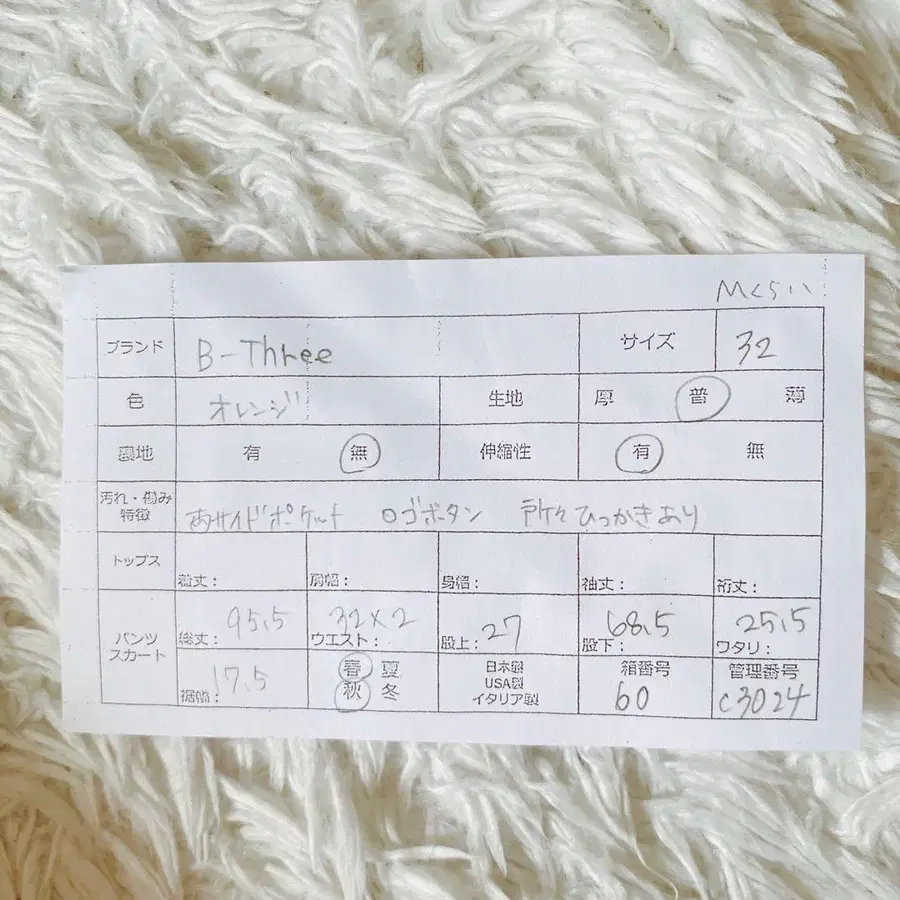 Mくらい
ブランド B-Three サイズ 32
色 オレンジ 生地 厚 普 薄
裏地 有 無 伸縮性 有 無
汚れ・傷み
特徴 両サイドポケット ロゴボタン 所々ひっかきあり
トップス 着丈: 肩幅: 身幅: 袖丈: 裄丈:
パンツ
スカート 総丈: 95.5 ウエスト: 32×2 股上: 27 股下: 68.5 ワタリ: 25.5
裾幅: 17.5 春 夏 日本製 箱番号 管理番号
秋 冬 USA製 60 c3024
イタリア製